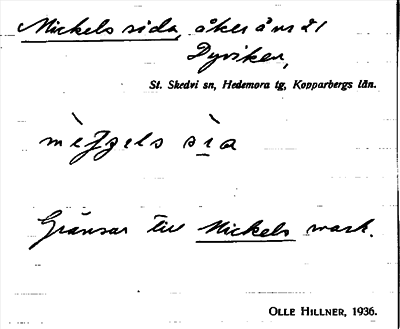 Mickels sida, åker å nr 21
Dyviken,
St. Skedvi sn, Hedemora tg, Kopparbergs län.
sia
Gränsar till Mickels mark.
OLLE HILLNER, 1936.